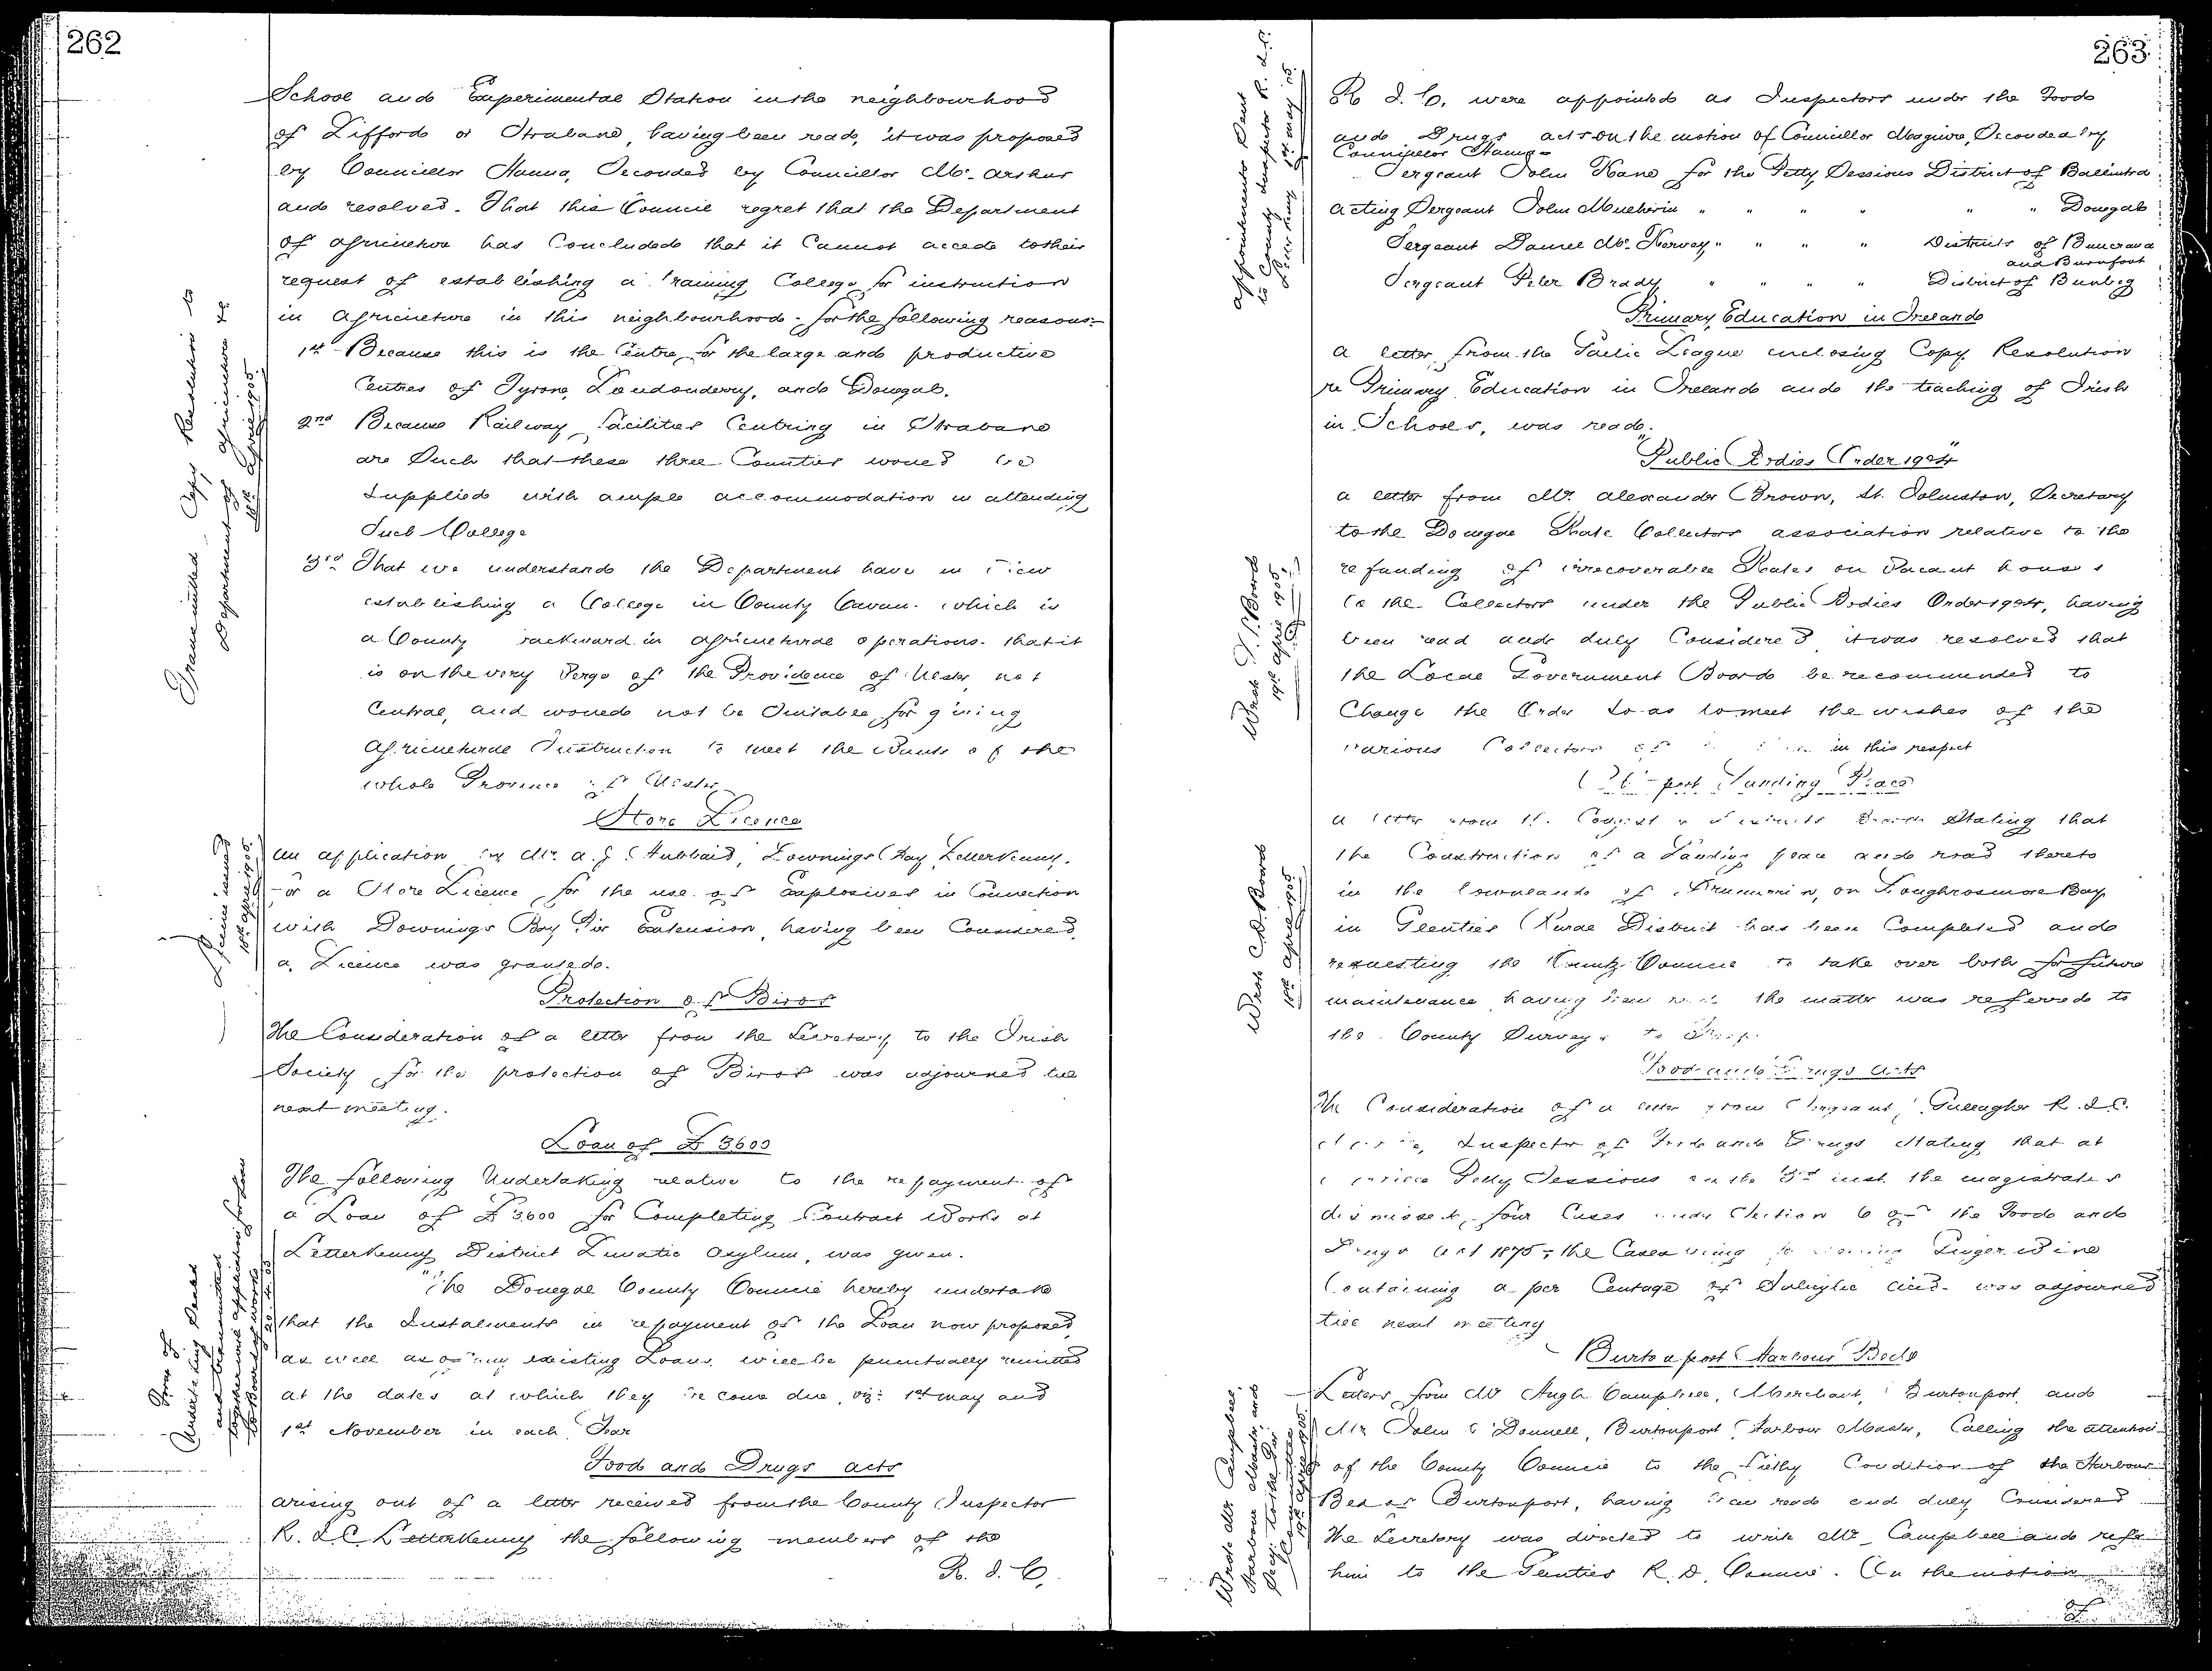 262
School and Experimental Station in the neighbourhood
of Lifford or Strabane, having been read, it was proposed
by Councillor Hanna, Seconded by Councillor Mc. Arthur
and resolved. That this Council regret that the Department
of Agriculture has Concluded that it Cannot accede to their
request of establishing a Training College for instruction
in Agriculture in this neighbourhood - for the following reasons:-
1st Because this is the Centre for the large and productive
Centres of Tyrone, Londonderry, and Donegal.
2nd Because Railway facilities Centring in Strabane
are Such that these three Counties would be
Supplied with ample accommodation in attending
Such College
3rd That we understand the Department have in View
establishing a College in County Cavan. which is
a County backward in Agricultural operations. that it
is on the very Verge of the Providence of Ulster, not
Central, and would not be Suitable for giving
Agricultural Instruction to meet the Wants of the
whole Province of Ulster
Store Licence
An application by Mr. A. J. Hubbard, Downings Bay, Letterkenny.
for a Store Licence for the use of Explosives in Connection
with Downings Bay Pier Extension, having been Considered,
a Licence was granted.
Protection of Birds
The Consideration of a letter from the Secretary to the Irish
Society for the protection of Birds was adjourned till
next meeting.
Loan of £3600
The following Undertaking relative to the repayment of
a Loan of £3600 for Completing Contract Works at
Letterkenny District Lunatic Asylum, was given.
"The Donegal County Council hereby undertake
that the Instalments in repayment of the Loan now proposed,
as well as of any existing Loans, will be punctually remitted
at the dates at which they become due, viz: 1st May and
1st November in each Year
Food and Drugs Acts
Arising out of a letter received from the County Inspector
R. I. C. Letterkenny the following members of the
R. I. C.
Transmitted Copy Resolution to
Department of Agriculture &c
18th April 1905.
Licence issued
18th April 1905.
Form of
Undertaking Sealed
and transmitted
together with application for loan
to Board of Works
20.4.05
263
R. I. C. were appointed as Inspectors under the Food
and Drugs Acts on the motion of Councillor Maguire, Seconded by
Councillor Hanna-
Sergeant John Kane for the Petty Sessions District of Ballintra
Acting Sergeant John Mulhorin " " " " " " Donegal
Sergeant Daniel Mc. Kervey " " " " Districts of Buncrana
and Burnfoot
Sergeant Peter Brady " " " " District of Bunbeg
Primary Education in Ireland
A letter from the Gaelic League enclosing Copy Resolution
re Primary Education in Ireland and the teaching of Irish
in Schools, was read.
"Public Bodies Order 1904"
A letter from Mr. Alexander Brown, St. Johnston, Secretary
to the Donegal Rate Collectors association relative to the
refunding of irrecoverable Rates on Vacant houses
to the Collectors under the Public Bodies Order 1904, having
been read and duly Considered it was resolved that
the Local Government Board be recommended to
Change the Order so as to meet the wishes of the
various Collectors of in this respect
port Landing Place
A letter from the Congested Districts Board Stating that
the Construction of a Landing place and road thereto
in the townland of on Loughrosmore Bay
in Glenties Rural District has been Completed and
requesting the County Council to take over both for future
maintenance having been read the matter was referred to
the County Surveyor to
Food and Drugs Acts
The Consideration of a letter from Sergeant Gallagher R.I.C.
Inspector of Food and Drugs Stating that at
Petty Sessions on the 3rd inst. the magistrates
dismissed four Cases under Section 6 of the Food and
Drugs Act 1875, the Cases being Ginger Wine
Containing a per Centage of Salicylic acid - was adjourned
till next meeting
Burtonport Harbour Beds
Letters from Mr Hugh Campbell, Merchant, Burtonport, and
Mr John O'Donnell, Burtonport Harbour Master, Calling the attention
of the County Council to the Filthy Condition of the Harbour
Bed of Burtonport, having been read and duly Considered
The Secretary was directed to write Mr Campbell and refer
him to the Glenties R. D. Council. On the motion
of
Appointments Sent
to County Inspector R. I. C.
Letterkenny 1st May 05.
Wrote L. G. Board
19th April 1905.
Wrote C. D. Board
18th April 1905
Wrote Mr Campbell,
Harbour Master and
19th April 1905